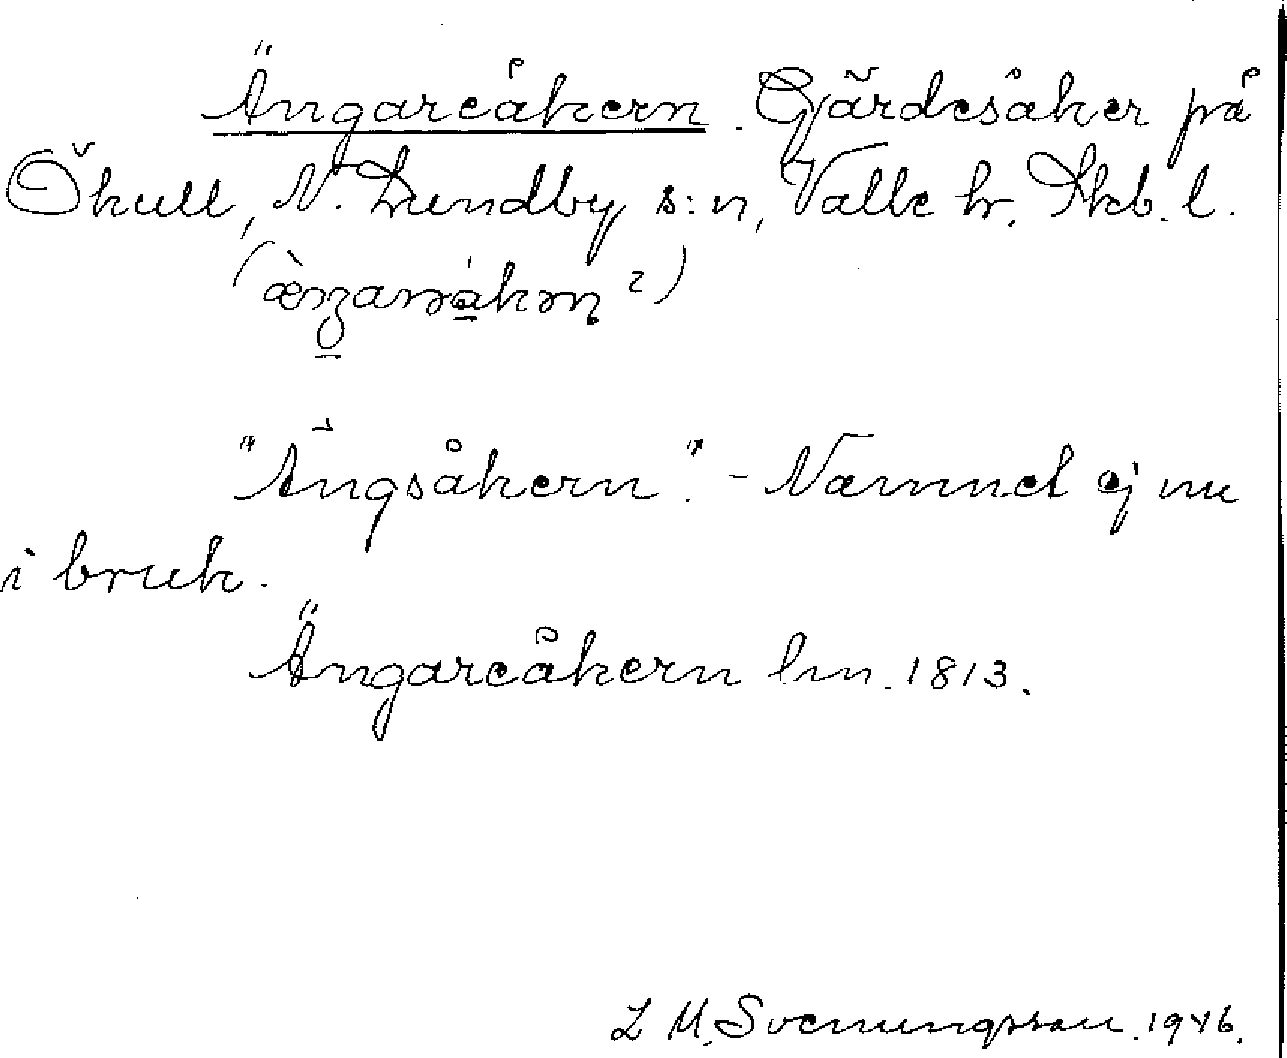 Ängareåkern. Gjärdesåker på
Ökull, N. Lundby s:n, Valle hr. Skb. l.
"Ängsåkern". - Namnet ej nu
i bruk.
Ängareåkern lm. 1813.
L M. Svenungsson. 1946.